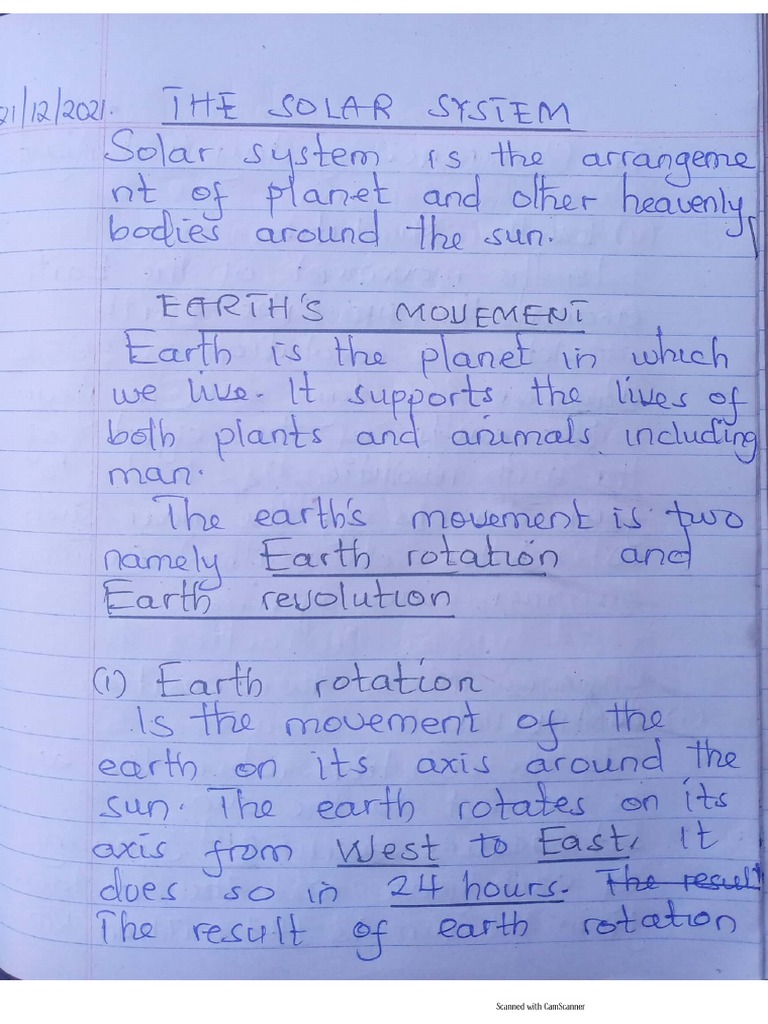 21/12/2021. THE SOLAR SYSTEM
Solar system is the arrangeme
nt of planet and other heavenly
bodies around the sun.
EARTH'S MOVEMENT
Earth is the planet in which
we live. It supports the lives of
both plants and animals including
man.
The earth's movement is two
namely Earth rotation and
Earth revolution
(1) Earth rotation
Is the movement of the
earth on its axis around the
sun. The earth rotates on its
axis from West to East, it
does so in 24 hours. The result
The result of earth rotation
Scanned with CamScanner